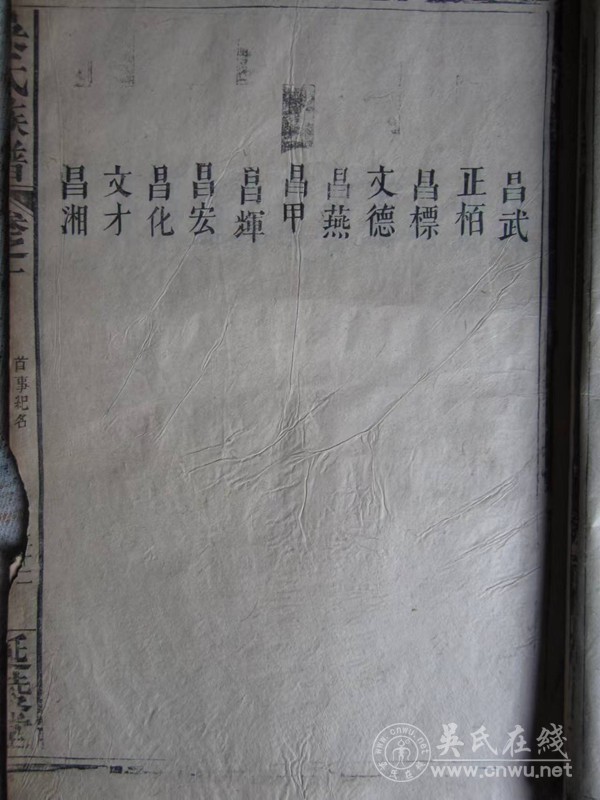 昌武
正栢
昌標
文德
昌燕
昌甲
昌輝
昌宏
昌化
文才
昌湘
吴氏族譜
卷之一
首事紀名
延陵堂
吴氏在线
www.cnwu.net